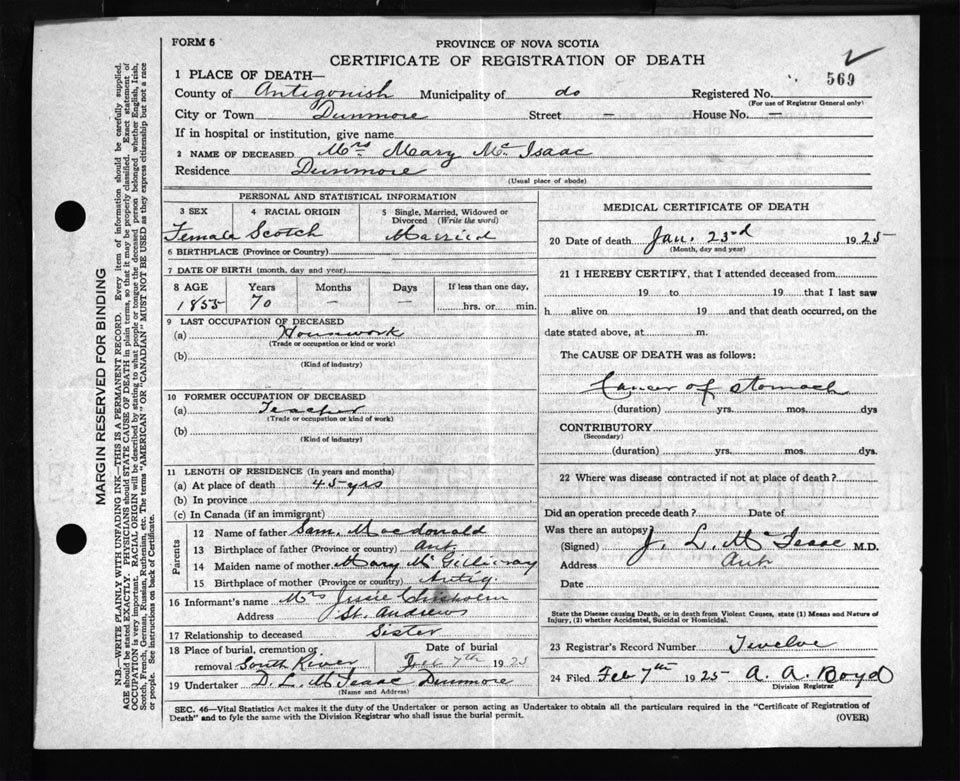 FORM 6
PROVINCE OF NOVA SCOTIA
CERTIFICATE OF REGISTRATION OF DEATH
569
1 PLACE OF DEATH—
County of Antigonish Municipality of do Registered No.
(For use of Registrar General only)
City or Town Dunmore Street — House No. —
If in hospital or institution, give name
2 NAME OF DECEASED Mrs Mary Mc Isaac
Residence Dunmore
(Usual place of abode)
PERSONAL AND STATISTICAL INFORMATION
3 SEX 4 RACIAL ORIGIN 5 Single, Married, Widowed or Divorced (Write the word)
Female Scotch Married
6 BIRTHPLACE (Province or Country)
7 DATE OF BIRTH (month, day and year)
8 AGE Years Months Days If less than one day,
1855 70 — — hrs. or min.
9 LAST OCCUPATION OF DECEASED
(a) Housework
(Trade or occupation or kind or work)
(b)
(Kind of industry)
10 FORMER OCCUPATION OF DECEASED
(a) Teacher
(Trade or occupation or kind of work)
(b)
(Kind of industry)
11 LENGTH OF RESIDENCE (In years and months)
(a) At place of death 45 yrs
(b) In province
(c) In Canada (if an immigrant)
Parents
12 Name of father Sam. Macdonald
13 Birthplace of father (Province or country) Ant.
14 Maiden name of mother Mary McGillivray
15 Birthplace of mother (Province or country) Antig.
16 Informant's name Mrs Jusie Chisholm
Address St. Andrews
17 Relationship to deceased Sister
18 Place of burial, cremation or removal South River
Date of burial Feb 7th 1925
19 Undertaker D. L. McIsaac Dunmore
(Name and Address)
MEDICAL CERTIFICATE OF DEATH
20 Date of death Jan. 23rd 1925
(Month, day and year)
21 I HEREBY CERTIFY, that I attended deceased from
19 to 19 that I last saw
h alive on 19 and that death occurred, on the
date stated above, at m.
The CAUSE OF DEATH was as follows:
Cancer of stomach
(duration) yrs. mos. dys
CONTRIBUTORY
(Secondary)
(duration) yrs. mos. dys.
22 Where was disease contracted if not at place of death?
Did an operation precede death? Date of
Was there an autopsy?
(Signed) J. L. McIsaac M.D.
Address Ant
Date
State the Disease causing Death, or in death from Violent Causes, state (1) Means and Nature of
Injury, (2) whether Accidental, Suicidal or Homicidal.
23 Registrar's Record Number Twelve
24 Filed Feb 7th 1925 A. A. Boyd
Division Registrar
SEC. 46—Vital Statistics Act makes it the duty of the Undertaker or person acting as Undertaker to obtain all the particulars required in the "Certificate of Registration of
Death" and to fyle the same with the Division Registrar who shall issue the burial permit.
(OVER)
MARGIN RESERVED FOR BINDING
N.B.—WRITE PLAINLY WITH UNFADING INK—THIS IS A PERMANENT RECORD. Every item of information should be carefully supplied.
AGE should be stated EXACTLY. PHYSICIANS should STATE CAUSE OF DEATH in plain terms, so that it may be properly classified. Exact statement of
OCCUPATION is very important. RACIAL ORIGIN will be described by stating to what people or tongue the deceased person belonged whether English, Irish,
Scotch, French, German, Russian, Ruthenian, etc. The terms "AMERICAN" OR "CANADIAN" MUST NOT BE USED as they express citizenship but not a race
or people. See instructions on back of Certificate.